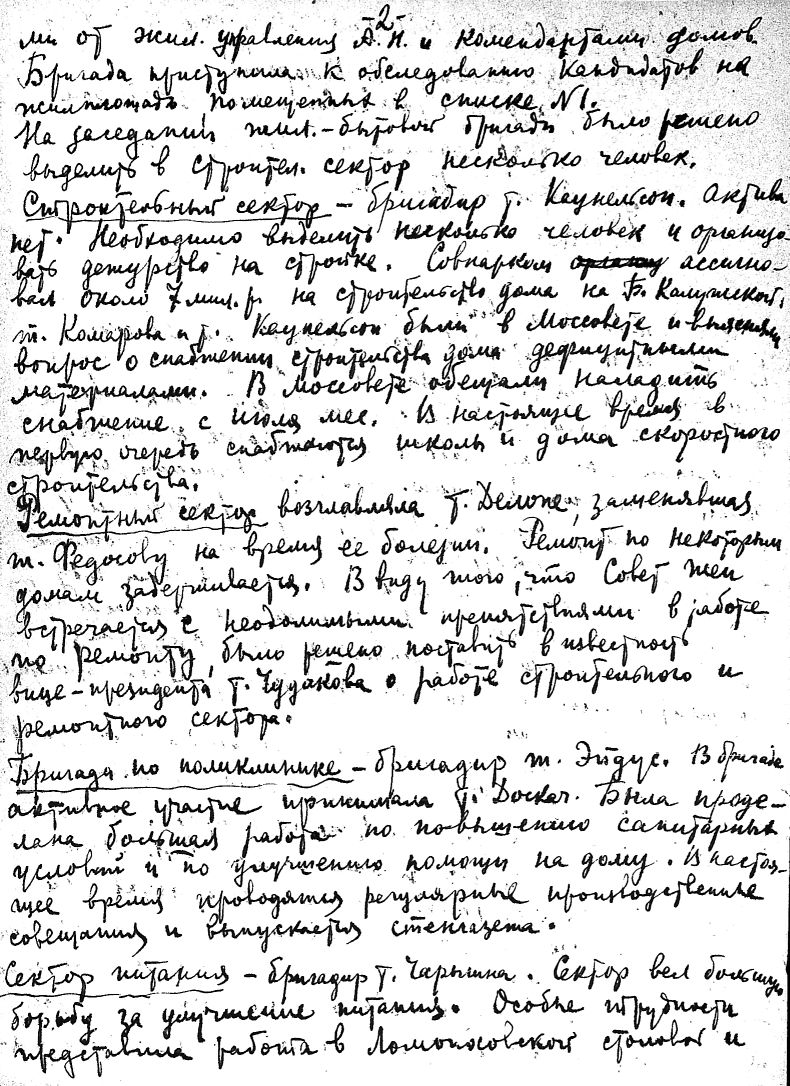 2
ми от жил. управления А.Н. и комендантами домов.
Бригада приступила к обследованию кандидатов на
жилплощадь помещенных в списке N1.
На заседании жил.-бытовой бригады было решено
выделить в строител. сектор несколько человек.
Строительный сектор – бригадир т. Каунельсон. Актива
нет. Необходимо выделить несколько человек и организо-
вать дежурство на стройке. Совнарком ассигно-
вал около 7 мил. р. на строительство дома на Б. Калужской.
т. Комарова и т. Каунельсон были в Моссовете и выясняли
вопрос о снабжении строительства дома дефицитными
материалами. В Моссовете обещали наладить
снабжение с июля мес. В настоящее время в
первую очередь снабжаются школы и дома скоростного
строительства.
Ремонтный сектор возглавляла т. Делоне, заменявшая
т. Федосову на время ее болезни. Ремонт по некоторым
домам задерживается. В виду того, что Совет жен
встречается с неодолимыми препятствиями в работе
по ремонту, было решено поставить в известность
вице-президента т. Чудакова о работе строительного и
ремонтного сектора.
Бригада по поликлинике – бригадир т. Эйдус. В бригаде
активное участие принимала т. Доскач. Была проде-
лана большая работа по повышению санитарных
условий и по улучшению помощи на дому. В настоя-
щее время проводятся регулярные производственные
совещания и выпускается стенгазета.
Сектор питания – бригадир т. Чарышна. Сектор вел большую
борьбу за улучшение питания. Особые трудности
представила работа в Ломоносовской столовой и